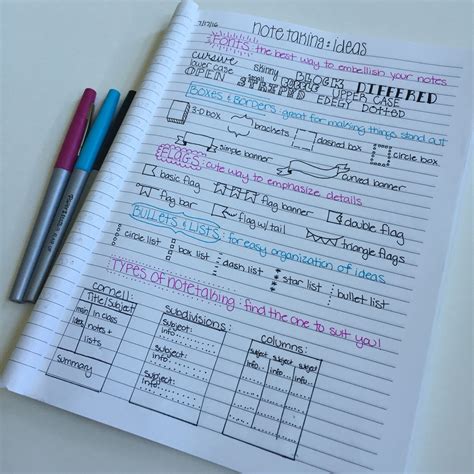 7/17/16
note taking: ideas
Fonts: the best way to embellish your notes
cursive skinny BLOCK DIFFERED
lower case small BUBBLE UPPER CASE
OPEN STRIPED EDGY DOTTED
Boxes & Borders: great for making things stand out
3-D box brackets dashed box circle box
simple banner curved banner
FLAGS: cute way to emphasize details
basic flag flag banner double flag
flag bar flag w/ tail triangle flags
BULLETS & LISTS: for easy organization of ideas
circle list box list dash list star list bullet list
Types of notetaking: find the one to suit you!
cornell: subdivisions: columns:
Title/Subject
main idea
in class notes + lists
summary
Subject:
info:
Subject:
info:
Subject:
info:
subject subject subject
info... info... info...